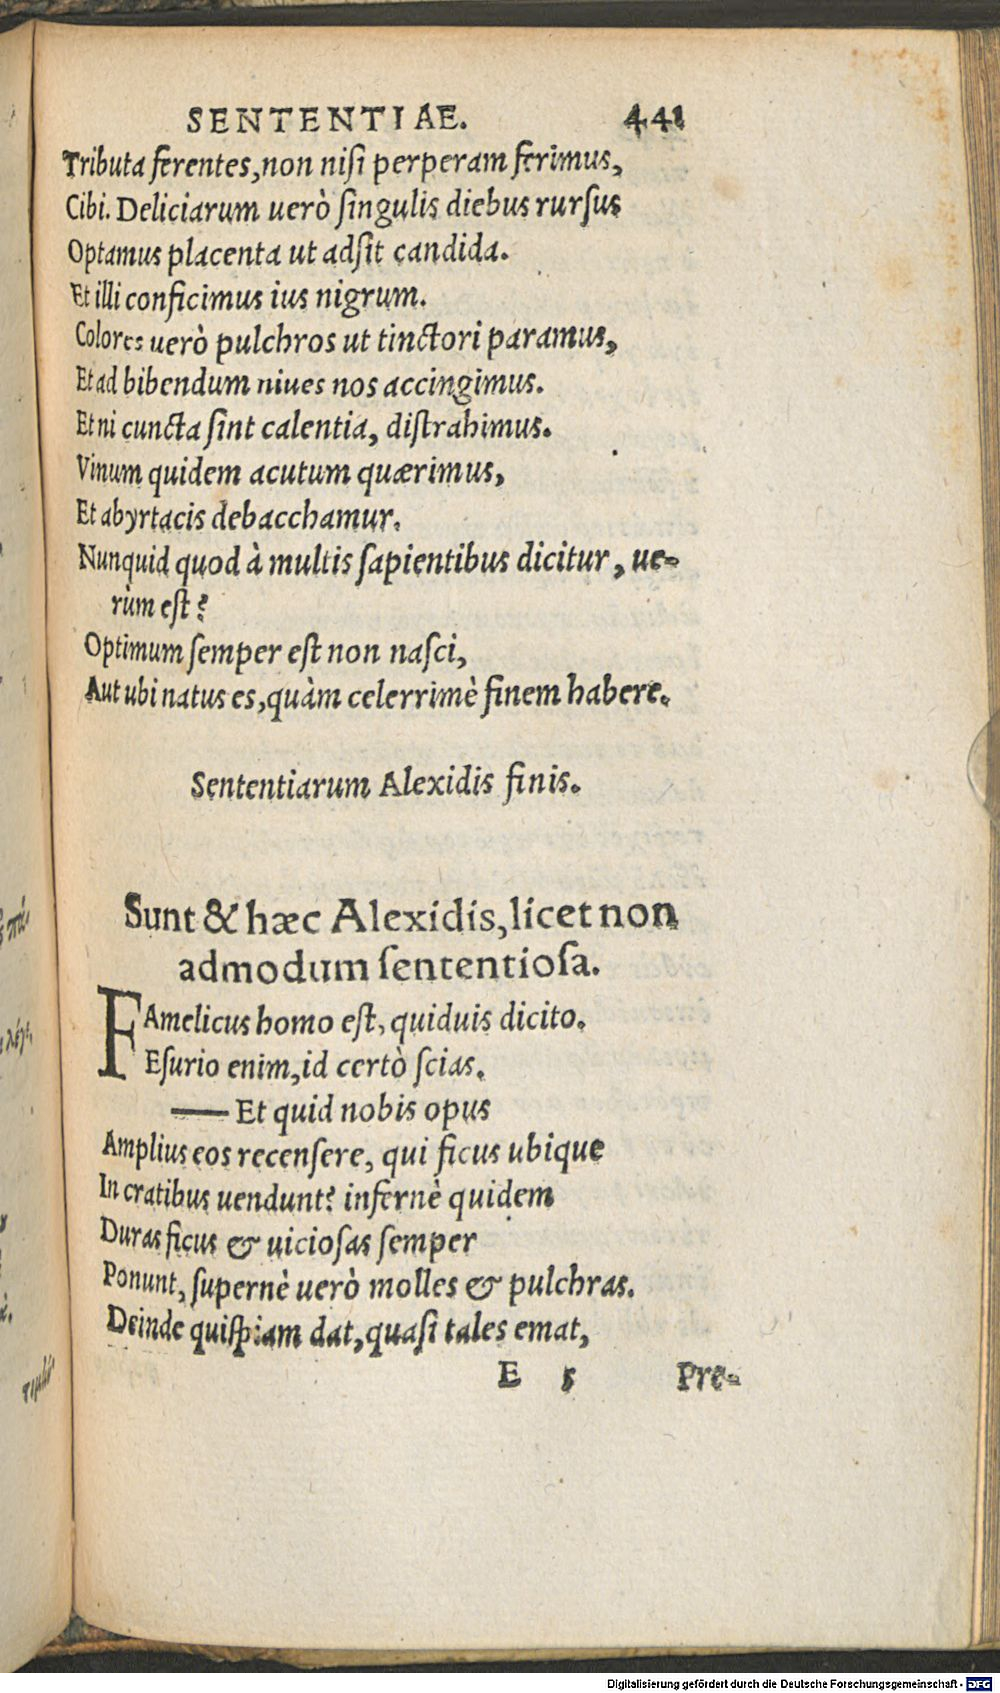 SENTENTIAE. 441
Tributa ferentes, non nisi perperam ferimus,
Cibi. Deliciarum uerò singulis diebus rursus
Optamus placenta ut adsit candida.
Et illi conficimus ius nigrum.
Colores uerò pulchros ut tinctori paramus,
Et ad bibendum niues nos accingimus.
Et ni cuncta sint calentia, distrahimus.
Vinum quidem acutum quærimus,
Et abyrtacis debacchamur.
Nunquid quod à multis sapientibus dicitur, ue-
rùm est?
Optimum semper est non nasci,
Aut ubi natus es, quàm celerrimè finem habere.
Sententiarum Alexidis finis.
Sunt & hæc Alexidis, licet non
admodum sententiosa.
FAmelicus homo est, quiduis dicito.
Esurio enim, id certò scias.
— Et quid nobis opus
Amplius eos recensere, qui ficus ubique
In cratibus uendunt? infernè quidem
Duras ficus & uiciosas semper
Ponunt, supernè uerò molles & pulchras.
Deinde quispiam dat, quasi tales emat,
E 5 Pre-
Digitalisierung gefördert durch die Deutsche Forschungsgemeinschaft - DFG